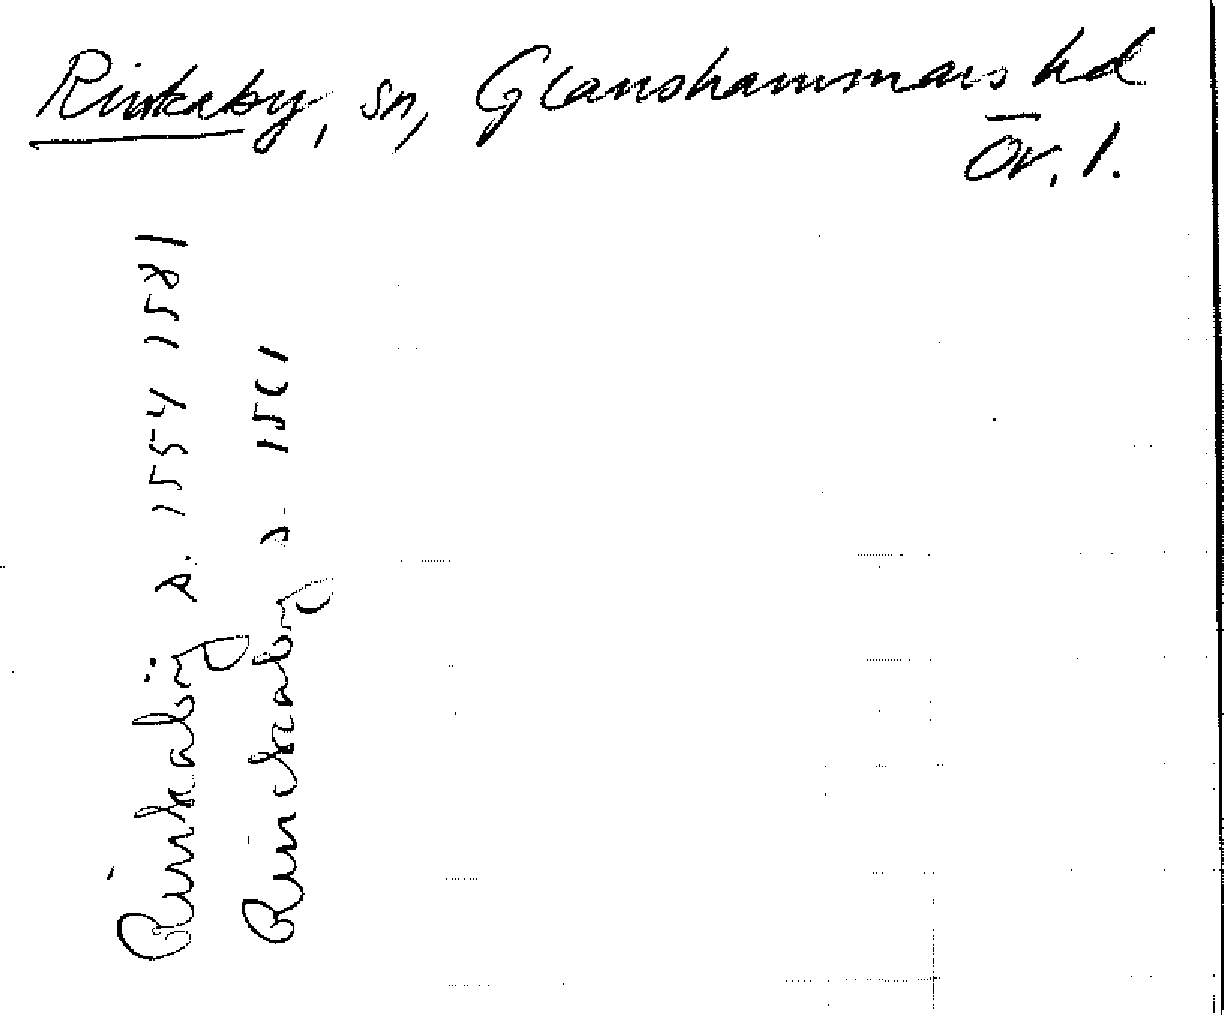 Rinkaby, sn, Glanshammars hd
Ör. l.
Rinkabÿ s. 1554 1581
Rinckaby s. 1561